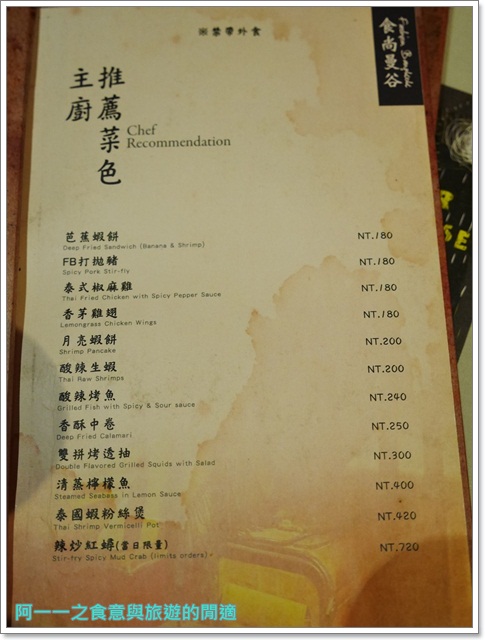 ※禁帶外食
食尚曼谷
Fashion Bangkok
主廚
推薦菜色
Chef
Recommendation
芭蕉蝦餅 NT.180
Deep Fried Sandwich (Banana & Shrimp)
FB打拋豬 NT.180
Spicy Pork Stir-fly
泰式椒麻雞 NT.180
Thai Fried Chicken with Spicy Pepper Sauce
香茅雞翅 NT.180
Lemongrass Chicken Wings
月亮蝦餅 NT.200
Shrimp Pancake
酸辣生蝦 NT.200
Thai Raw Shrimps
酸辣烤魚 NT.240
Grilled Fish with Spicy & Sour sauce
香酥中卷 NT.250
Deep Fried Calamari
雙拼烤透抽 NT.300
Double Flavored Grilled Squids with Salad
清蒸檸檬魚 NT.400
Steamed Seabass in Lemon Sauce
泰國蝦粉絲煲 NT.420
Thai Shrimp Vermicelli Pot
辣炒紅蟳(當日限量) NT.720
Stir-fry Spicy Mud Crab (limits orders)
阿一一之食意與旅遊的閒適